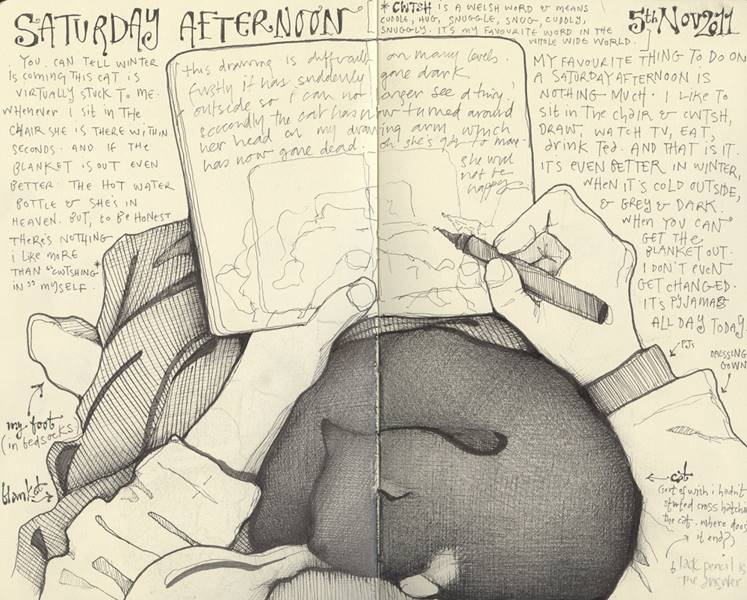 SATURDAY AFTERNOON
* CWTSH IS A WELSH WORD & MEANS
CUDDLE, HUG, SNUGGLE, SNUG, CUDDLY,
SNUGGLY. IT'S MY FAVOURITE WORD IN THE
WHOLE WIDE WORLD.
5th Nov 2011
. YOU. CAN TELL WINTER
IS COMING THIS CAT IS
VIRTUALLY STUCK TO ME.
WHENEVER I SIT IN THE
CHAIR SHE IS THERE WITHIN
SECONDS. AND IF THE
BLANKET IS OUT EVEN
BETTER. THE HOT WATER
BOTTLE & SHE'S IN
HEAVEN. BUT, TO BE HONEST
THERE'S NOTHING
I LIKE MORE
THAN "CWTSHING*
IN" MYSELF.
this drawing is difficult on many levels.
firstly it has suddenly gone dark
outside so i can not longer see a thing,
secondly the cat has now turned around
her head on my drawing arm which
has now gone dead. oh she's got to move.
she will
not be
happy
MY FAVOURITE THING TO DO ON
A SATURDAY AFTERNOON IS
NOTHING MUCH. I LIKE TO
SIT IN THE CHAIR & CWTSH,
DRAW, WATCH TV, EAT,
DRINK TEA. AND THAT IS IT.
IT'S EVEN BETTER IN WINTER,
WHEN IT'S COLD OUTSIDE,
& GREY & DARK.
WHEN YOU CAN
GET THE
BLANKET OUT.
I DON'T EVEN
GET CHANGED.
IT'S PYJAMAS
ALL DAY TODAY.
PJs
DRESSING
GOWN
my foot
(in bedsocks)
blanket
cat
(sort of wish i hadn't
started cross hatching
the cat. where does
it end?)
black pencil is
the answer